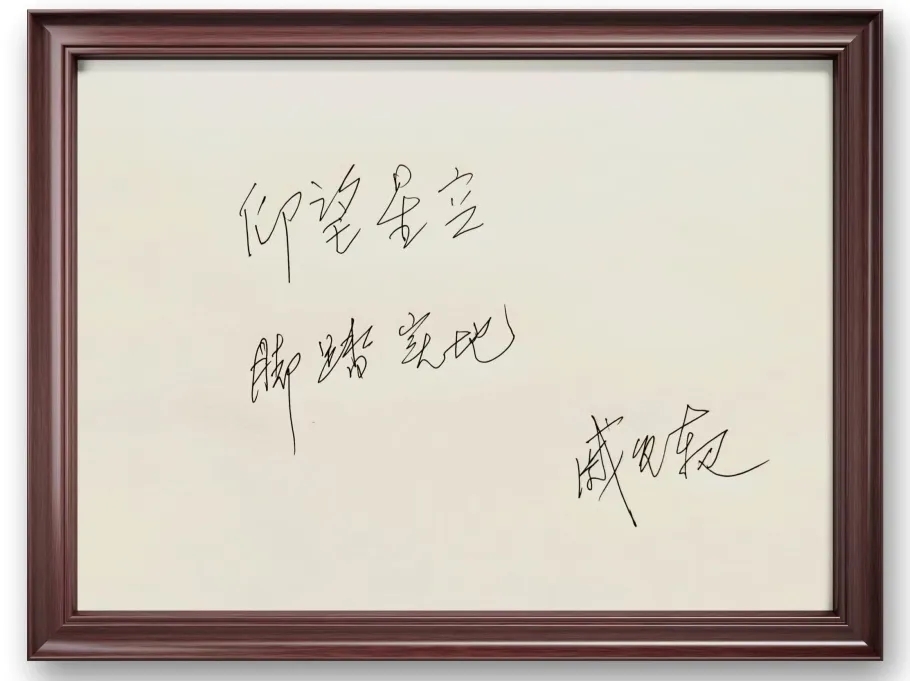 仰望星空
脚踏实地
戚发轫